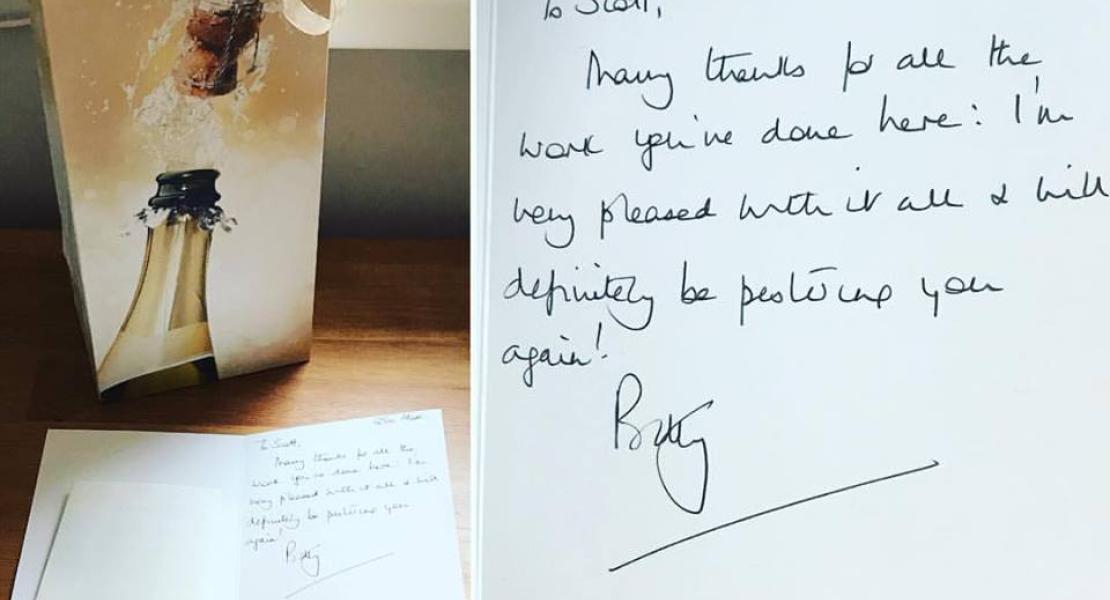 To Scott,
Many thanks for all the
work you've done here: I'm
very pleased with it all & will
definitely be pestering you
again!
Betty
To Scott,
Many thanks for all the
work you've done here: I'm
very pleased with it all & will
definitely be pestering you
again!
Betty